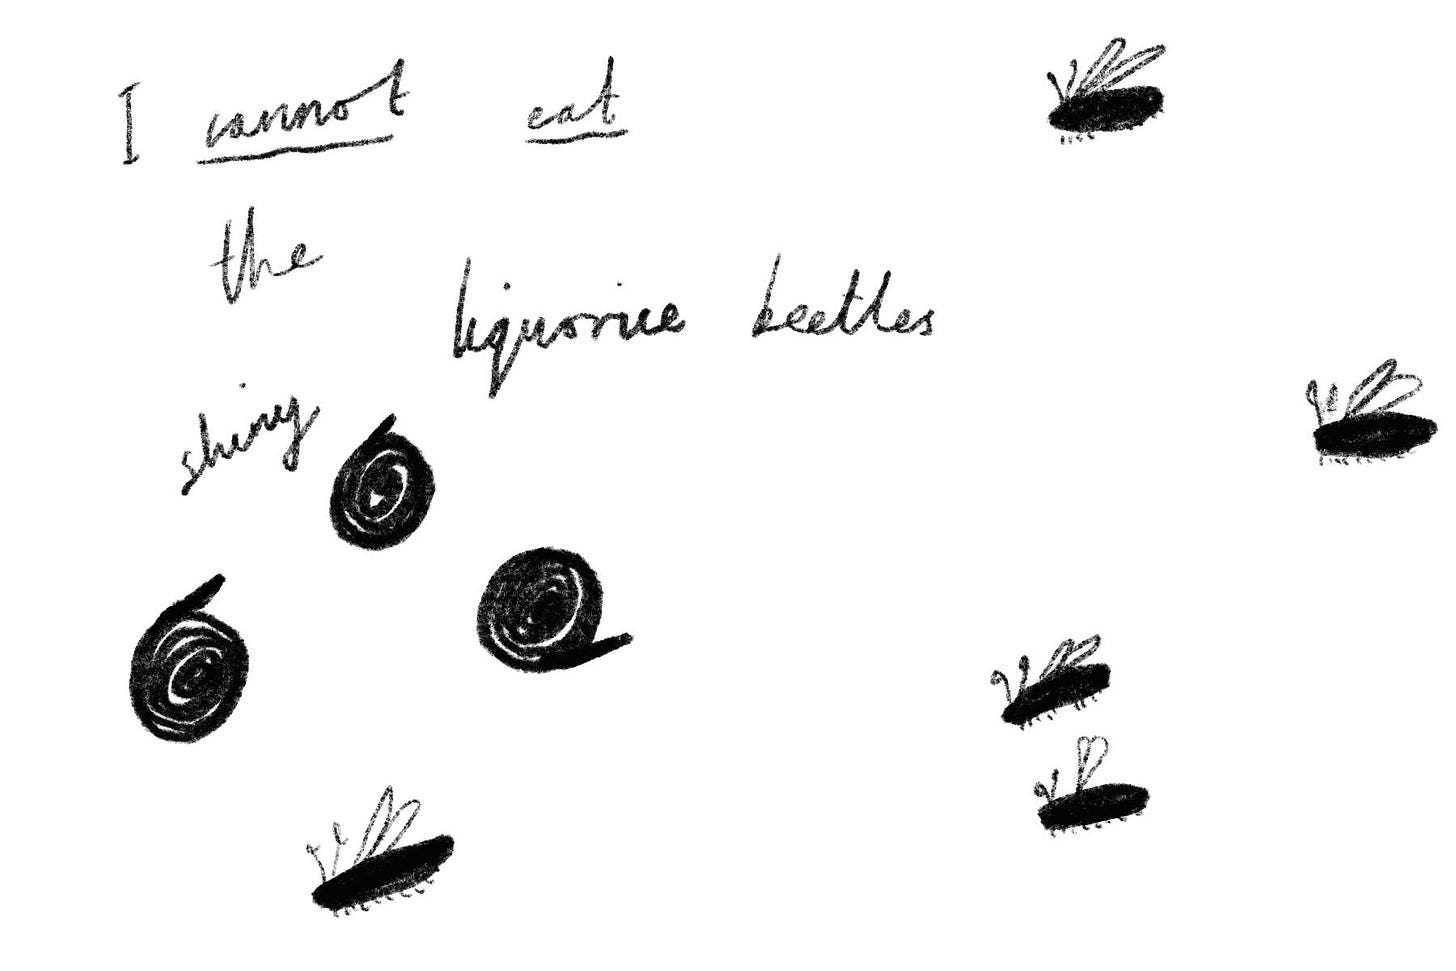 I cannot eat
the
liquorice beetles
shiny